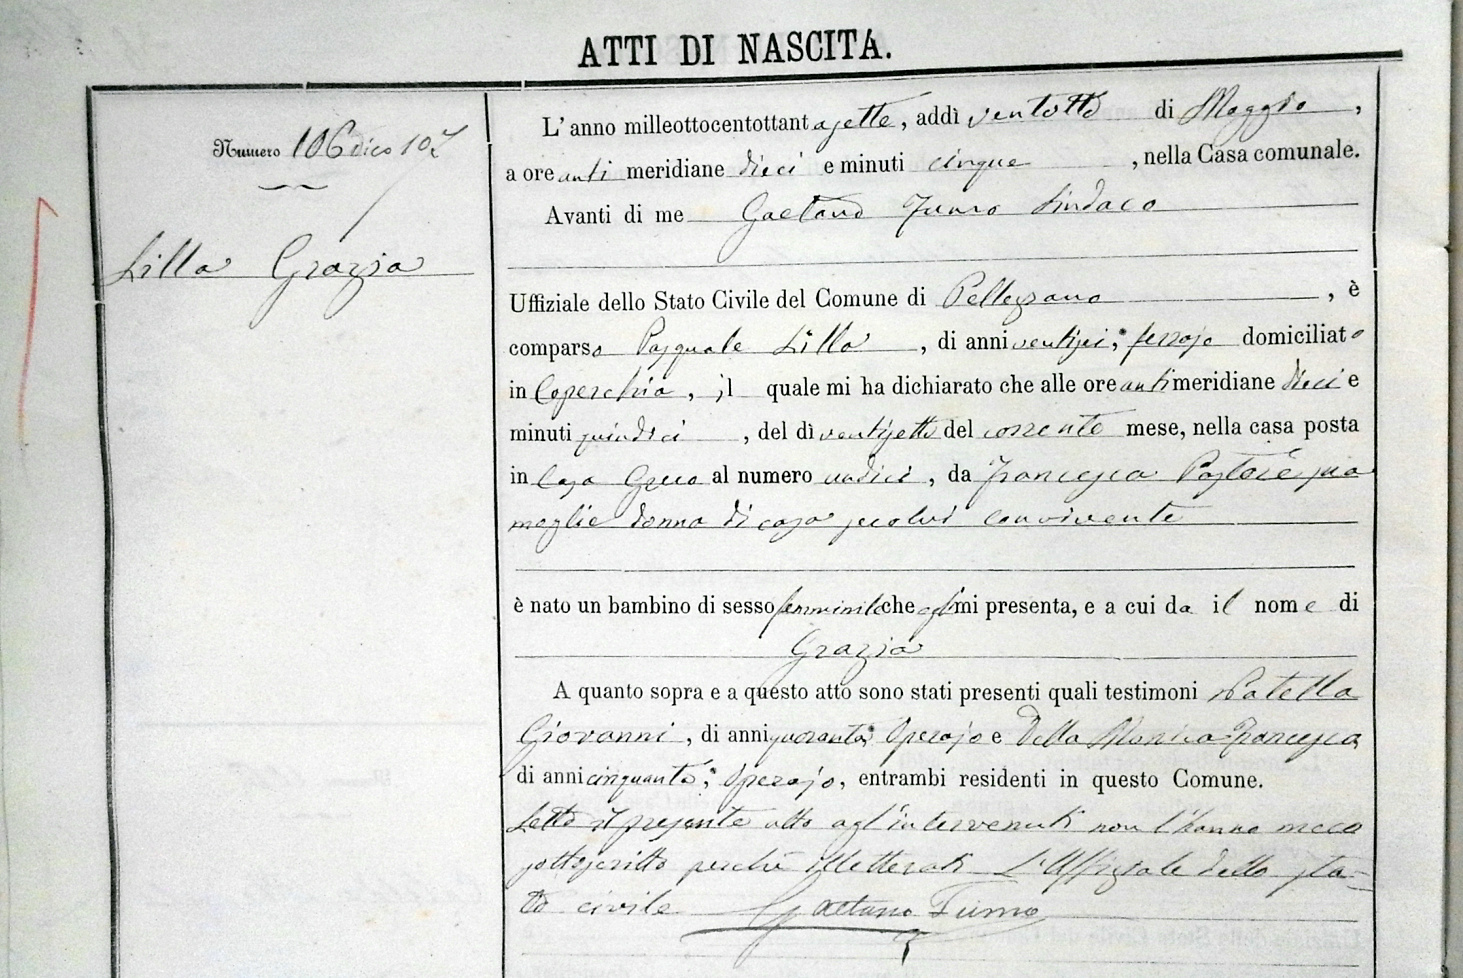 ATTI DI NASCITA.
Numero 106 dico 107
Lilla Grazia
L'anno milleottocentottantasette, addì ventotto di Maggio,
a ore anti meridiane dieci e minuti cinque, nella Casa comunale.
Avanti di me Gaetano Fumo Sindaco
Uffiziale dello Stato Civile del Comune di Pellezzano, è
comparso Pasquale Lilla, di anni ventisei, ferrajo domiciliato
in Coperchia, il quale mi ha dichiarato che alle ore antimeridiane dieci e
minuti quindici, del dì ventisette del corrente mese, nella casa posta
in Casa Greco al numero undici, da Francesca Pastore sua
moglie donna di casa secolui convivente
è nato un bambino di sesso femminile che egli mi presenta, e a cui da il nome di
Grazia
A quanto sopra e a questo atto sono stati presenti quali testimoni Natella
Giovanni, di anni quaranta, Operajo e Della Monica Francesca
di anni cinquanta, Operajo, entrambi residenti in questo Comune.
Letto il presente atto agl'intervenuti non l'hanno meco
sottoscritto perchè illetterati L'Uffiziale dello sta-
to civile Gaetano Fumo